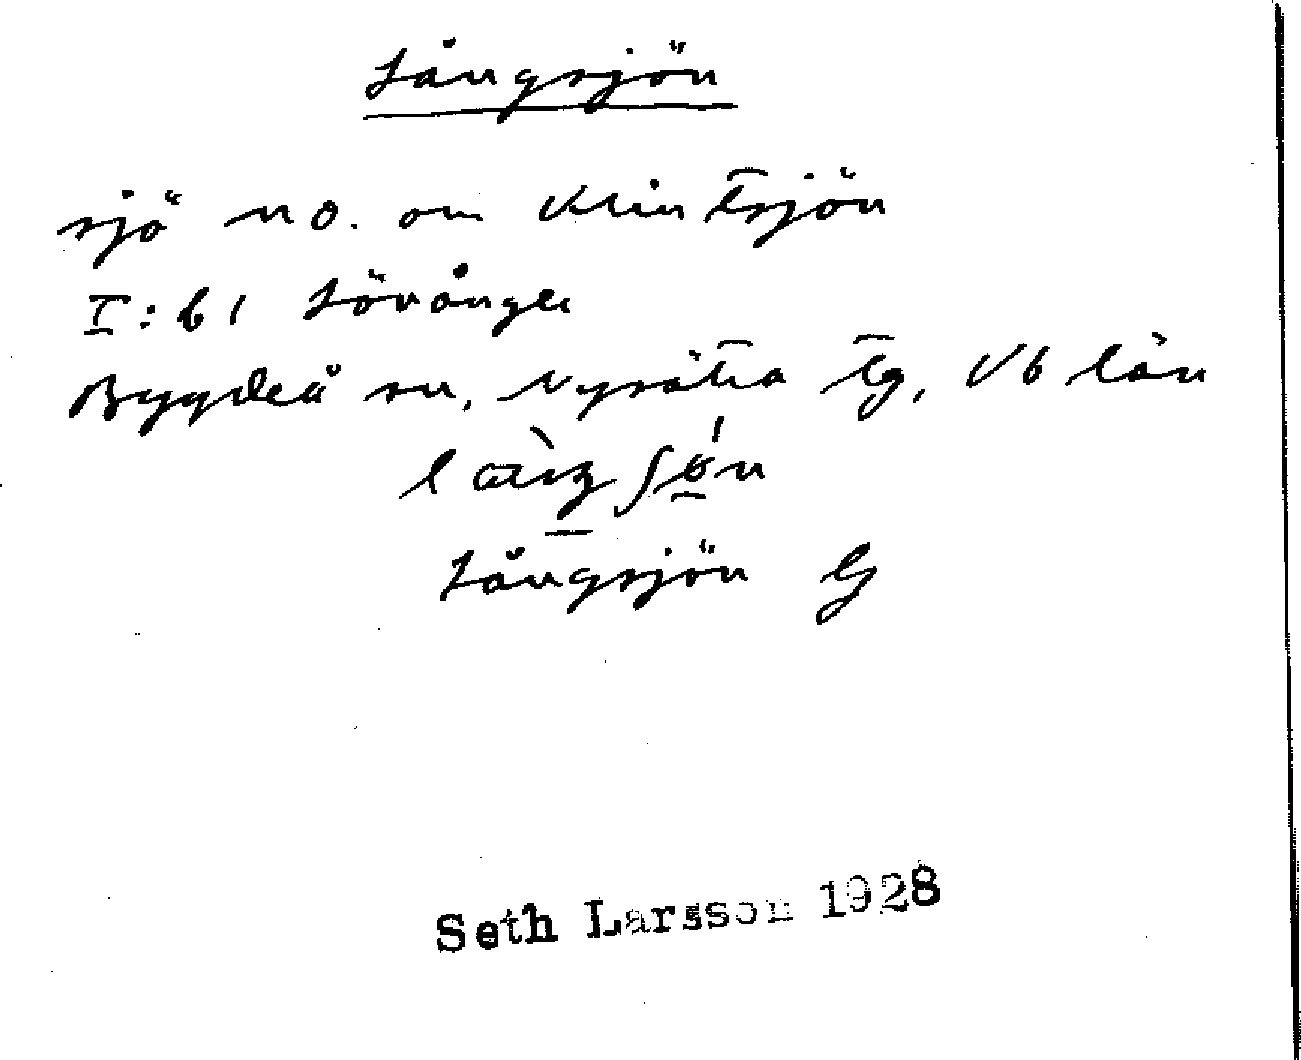 Långsjön
sjö NO. om Klintsjön
I:61 Lövånger
Bygdeå sn, Nysätra tg, Vb län
Långsjön G
Seth Larsson 1928